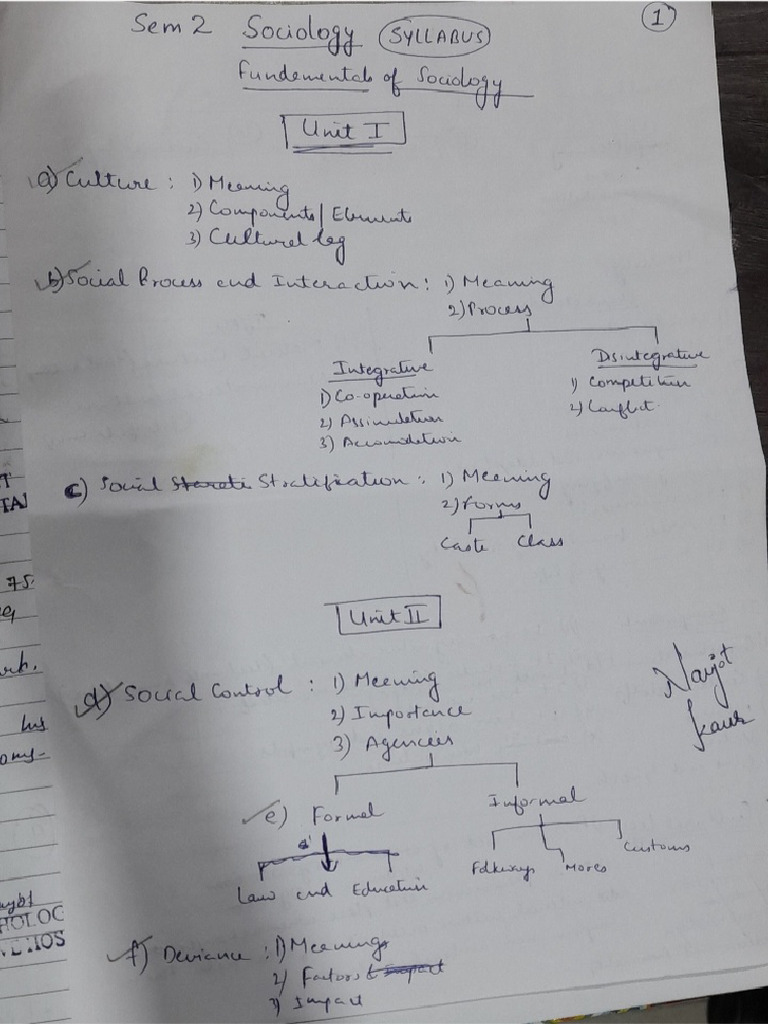 1
Sem 2 Sociology SYLLABUS
Fundamentals of Sociology
Unit I
a) Culture : 1) Meaning
2) Components / Elements
3) Cultural lag
b) Social Process and Interaction : 1) Meaning
2) Process
Integrative
1) Co-operation
2) Assimilation
3) Accomodation
Disintegrative
1) Competition
2) Conflict
c) Social Stratification : 1) Meaning
2) Forms
Caste Class
Unit II
d) Social Control : 1) Meaning
2) Importance
3) Agencies
e) Formal Informal
Law and Education
Folkways Mores Customs
f) Deviance : 1) Meaning
2) Factors & impact
3) Impact
Navjot
Kaur
75.
HOLOC